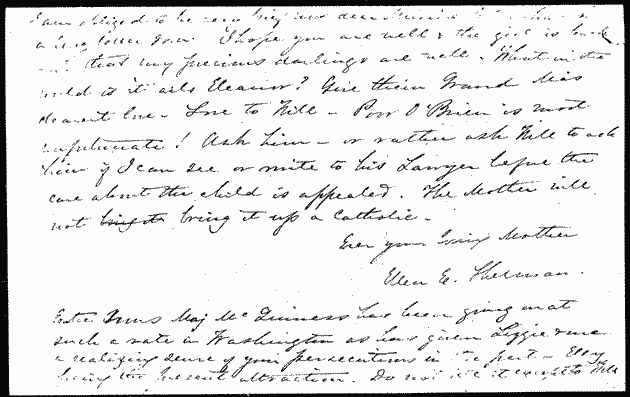 I am obliged to be very brief now dear
a long letter soon. I hope you are well & the girl is back
that my precious darlings are well. What in the
world is it ails Eleanor? Give them Grand Ma's
dearest love - Love to Will - Poor O'Brien is most
unfortunate! Ask him - or rather ask Will to ask
him if I can see or write to his Lawyer before the
case about the child is appealed. The Mother will
not bring it up a Catholic -
Ever your loving Mother
Ellen E. Sherman.
Maj Mc Guinness has been going on at
such a rate in Washington as has given Lizzie & me
a realizing sense of your persecutions in the past -
being the present attraction. Do not